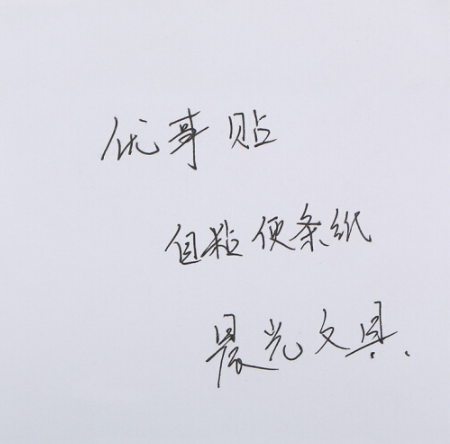 优事贴
自粘便条纸
晨光文具